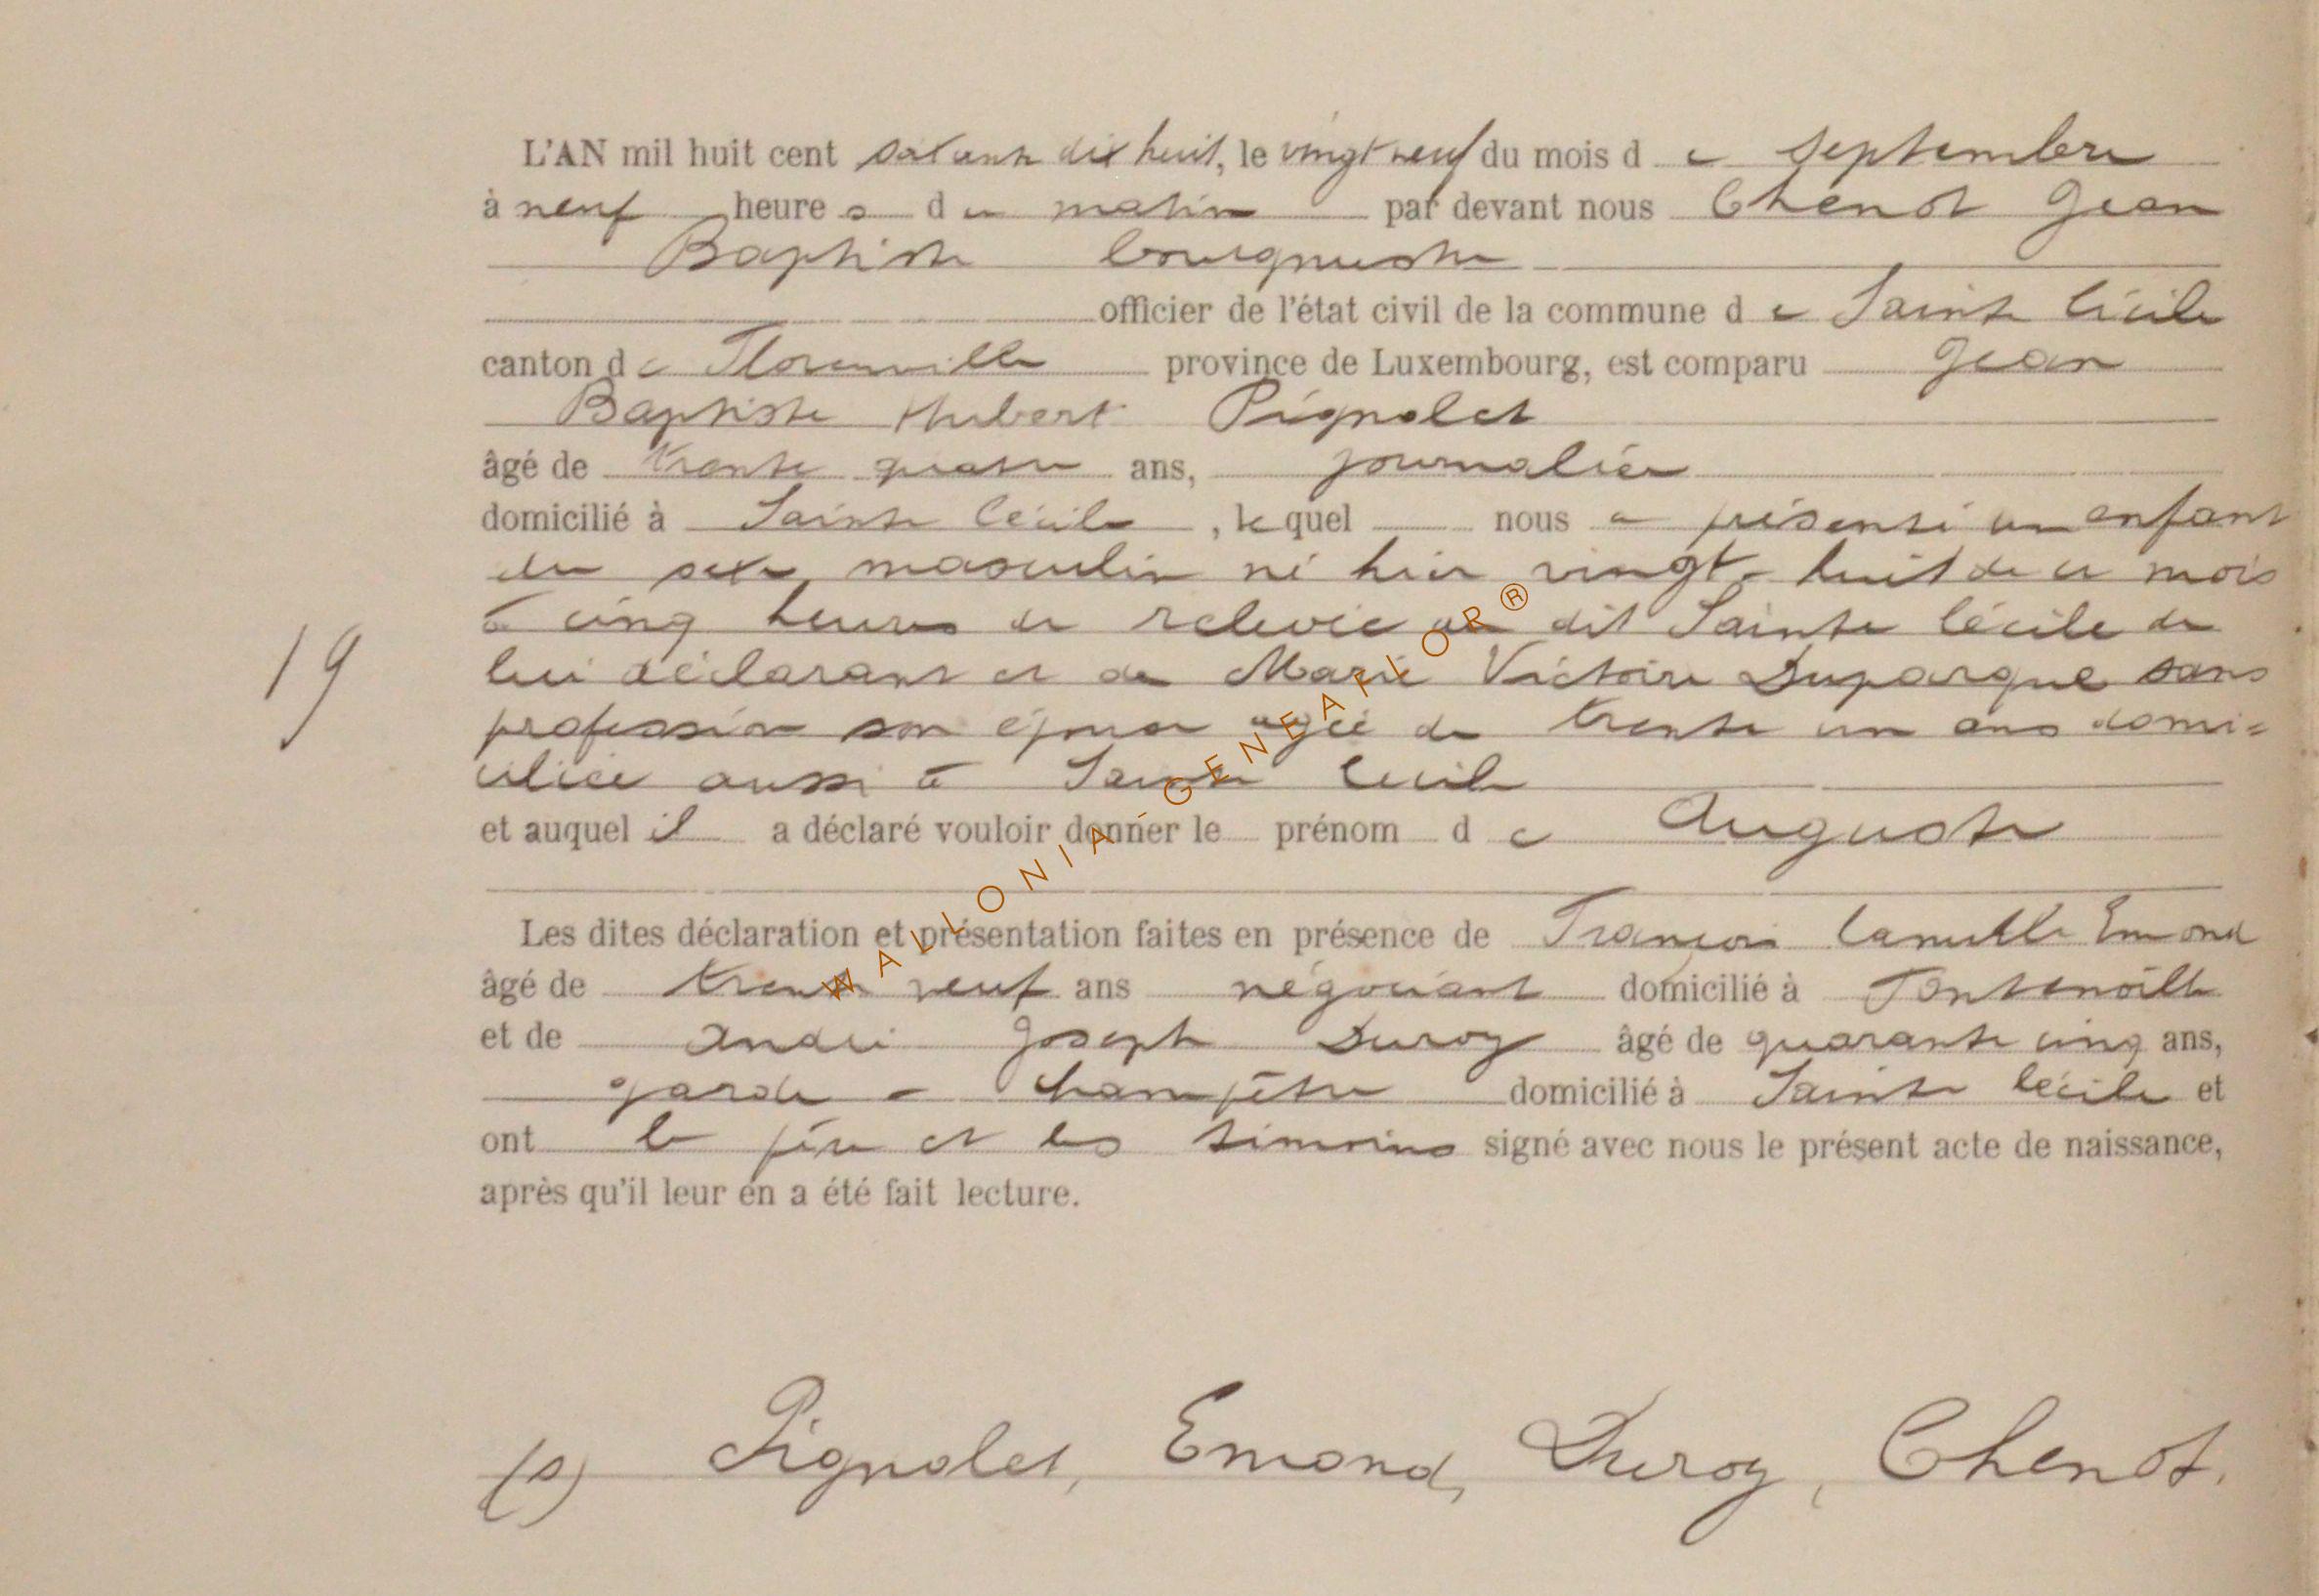 L'AN mil huit cent soixante dix huit, le vingt neuf du mois de septembre
à neuf heures du matin par devant nous Chenot Jean
Baptiste bourgmestre
officier de l'état civil de la commune de Sainte Cécile
canton de Florenville province de Luxembourg, est comparu Jean
Baptiste Hubert Pignolet
âgé de trente quatre ans, journalier
domicilié à Sainte Cécile, lequel nous a présenté un enfant
du sexe masculin né hier vingt-huit de ce mois
à cinq heures de relevée au dit Sainte Cécile de
19
lui déclarant et de Marie Victoire Duparque sans
profession son épouse agée de trente un ans domi=
ciliée aussi à Sainte Cécile
et auquel il a déclaré vouloir donner le prénom de Auguste
Les dites déclaration et présentation faites en présence de François Camille Emond
âgé de trente neuf ans négociant domicilié à Fontenoille
et de André Joseph Duroy âgé de quarante cinq ans,
garde-champêtre domicilié à Sainte Cécile et
ont le père et les témoins signé avec nous le présent acte de naissance,
après qu'il leur en a été fait lecture.
(s) Pignolet, Emond, Duroy, Chenot.
WALLONIA-GENEAFLOR®